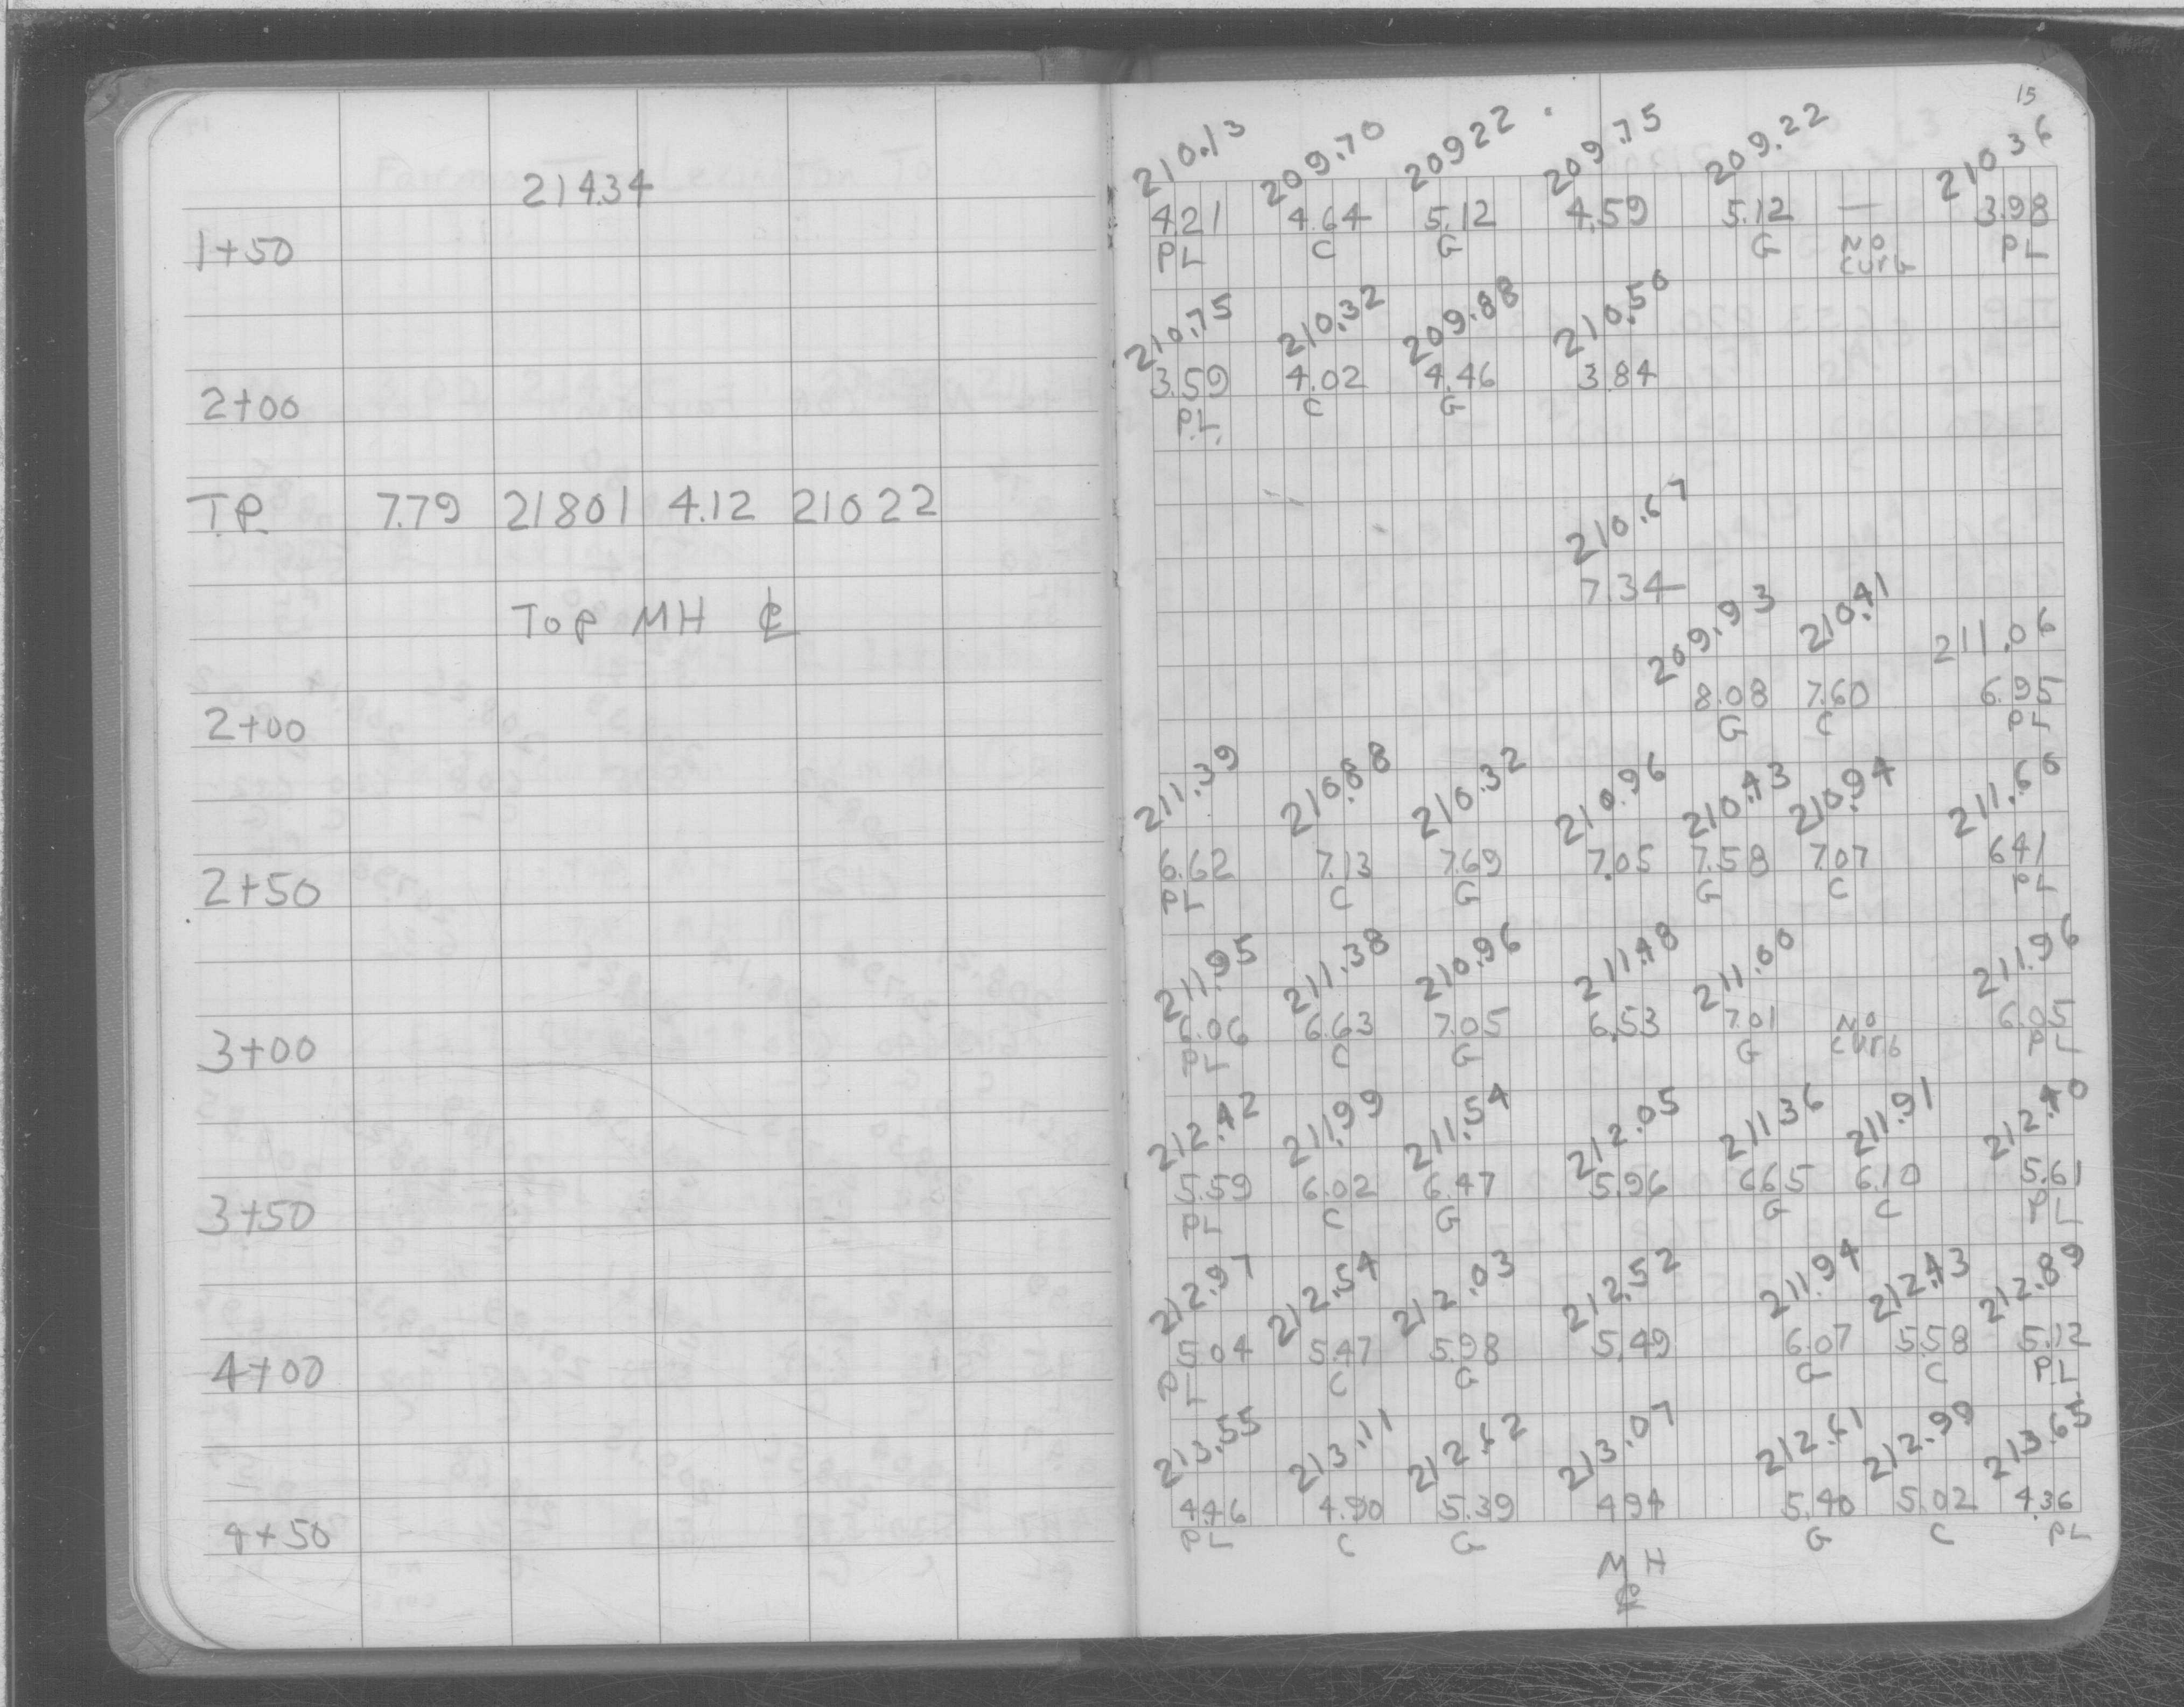 214.34
1+50
2+00
T.P. 7.79 218.01 4.12 210.22
Top MH ℄
2+00
2+50
3+00
3+50
4+00
4+50
15
210.13 209.70 20922 209.75 209.22 21036
4.21 4.64 5.12 4.59 5.12 — 3.98
PL C G G NO PL
curb
210.75 210.32 209.88 210.50
3.59 4.02 4.46 3.84
P.L. C G
210.67
7.34
209.93 210.41 211.06
8.08 7.60 6.95
G C PL
211.39 210.88 210.32 210.96 210.43 210.94 211.60
6.62 7.13 7.69 7.05 7.58 7.07 6.41
PL C G G C PL
211.95 211.38 210.96 211.48 211.00 211.96
6.06 6.63 7.05 6.53 7.01 NO 6.05
PL C G G curb PL
212.42 211.99 211.54 212.05 21136 211.91 212.40
5.59 6.02 6.47 5.96 6.65 6.10 5.61
PL C G G C PL
212.97 212.54 212.03 212.52 211.94 212.43 212.89
5.04 5.47 5.98 5.49 6.07 5.58 5.12
PL C G G C P.L.
213.55 213.11 212.62 213.07 212.61 212.99 213.65
4.46 4.90 5.39 4.94 5.40 5.02 4.36
PL C G G C PL
MH
℄